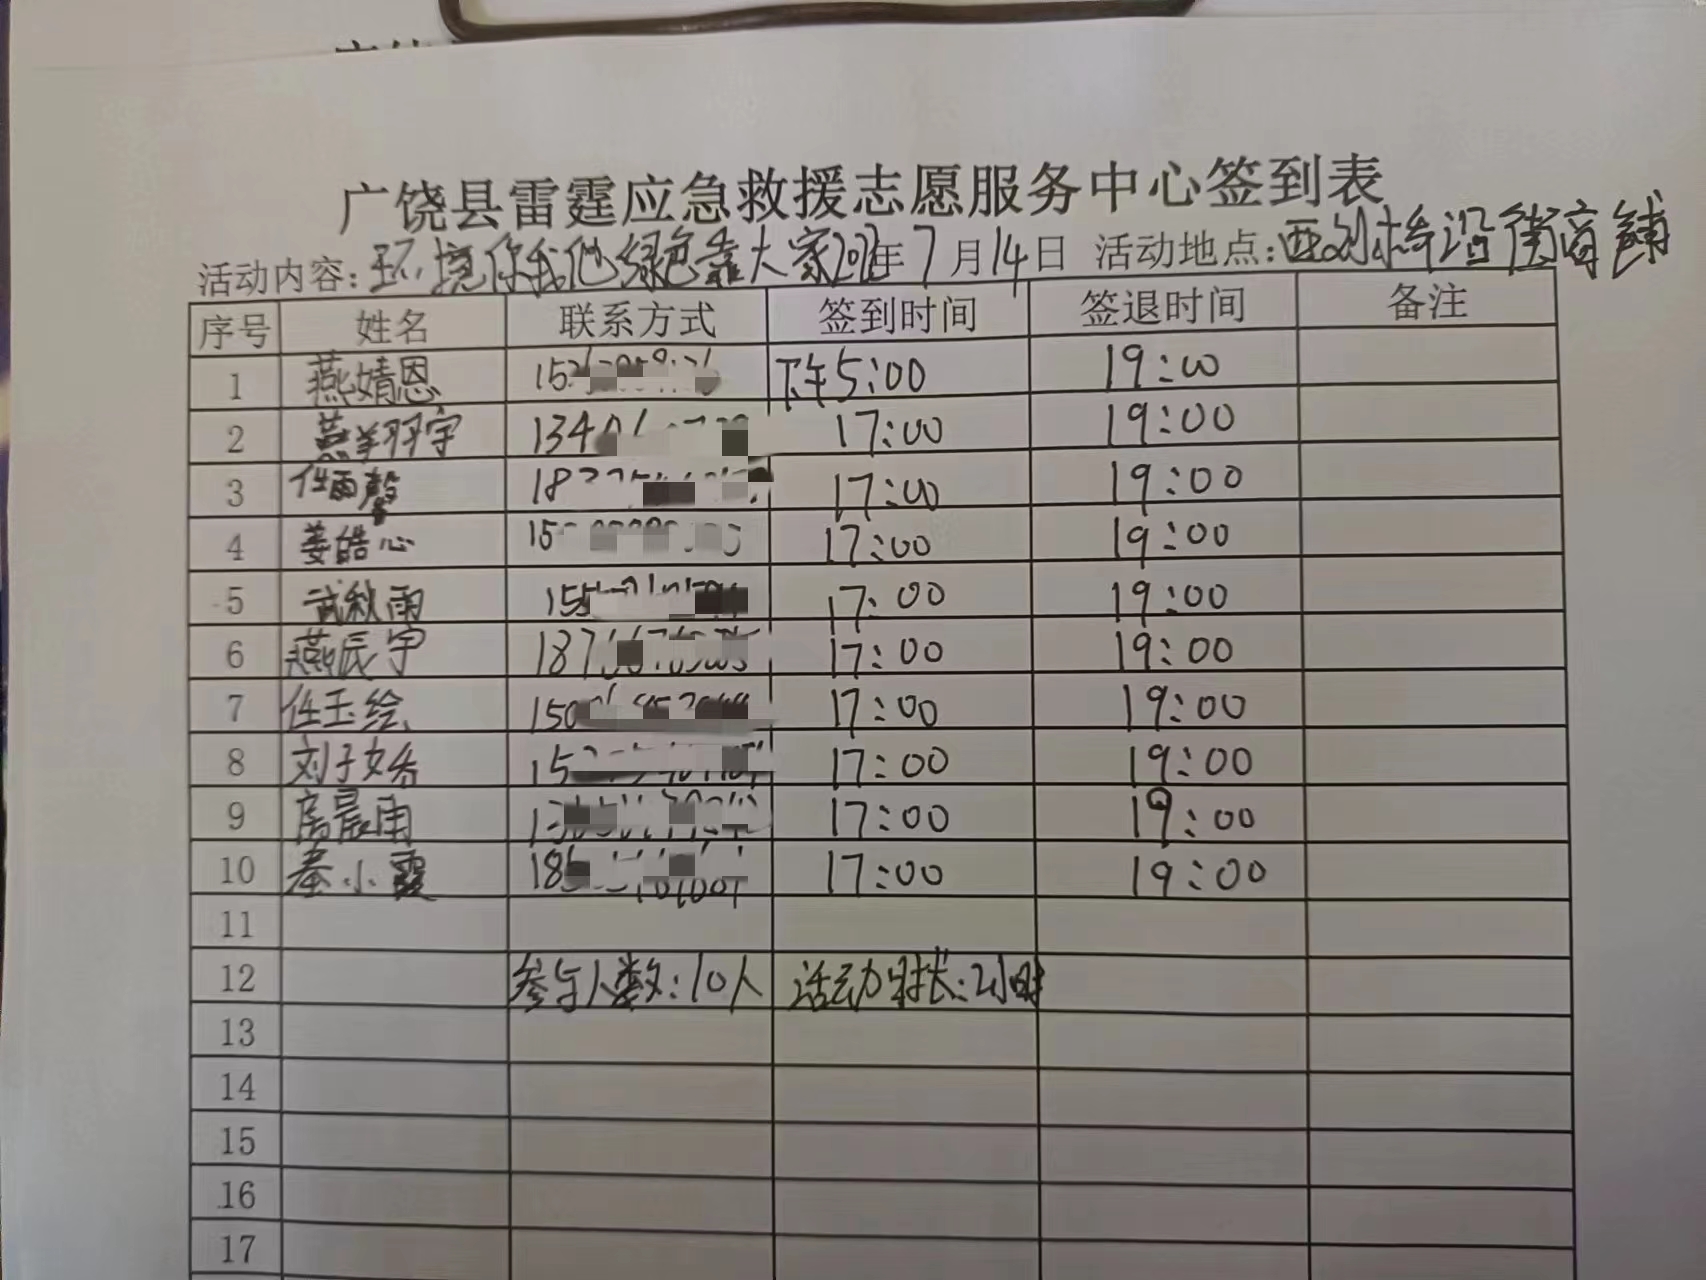 广饶县雷霆应急救援志愿服务中心签到表
活动内容:环境你我他绿色靠大家 年7月14日 活动地点:西刘桥沿街商铺
序号 姓名 联系方式 签到时间 签退时间 备注
1 燕婧恩 152 下午5:00 19:00
2 燕翔宇 1340 17:00 19:00
3 任雨馨 18 17:00 19:00
4 姜皓心 15 17:00 19:00
5 武秋雨 155 17:00 19:00
6 燕辰宇 187 17:00 19:00
7 任玉绘 150 17:00 19:00
8 刘子 15 17:00 19:00
9 晨雨 13 17:00 19:00
10 秦小霞 18 17:00 19:00
11
12 参与人数:10人 活动时长:2小时
13
14
15
16
17